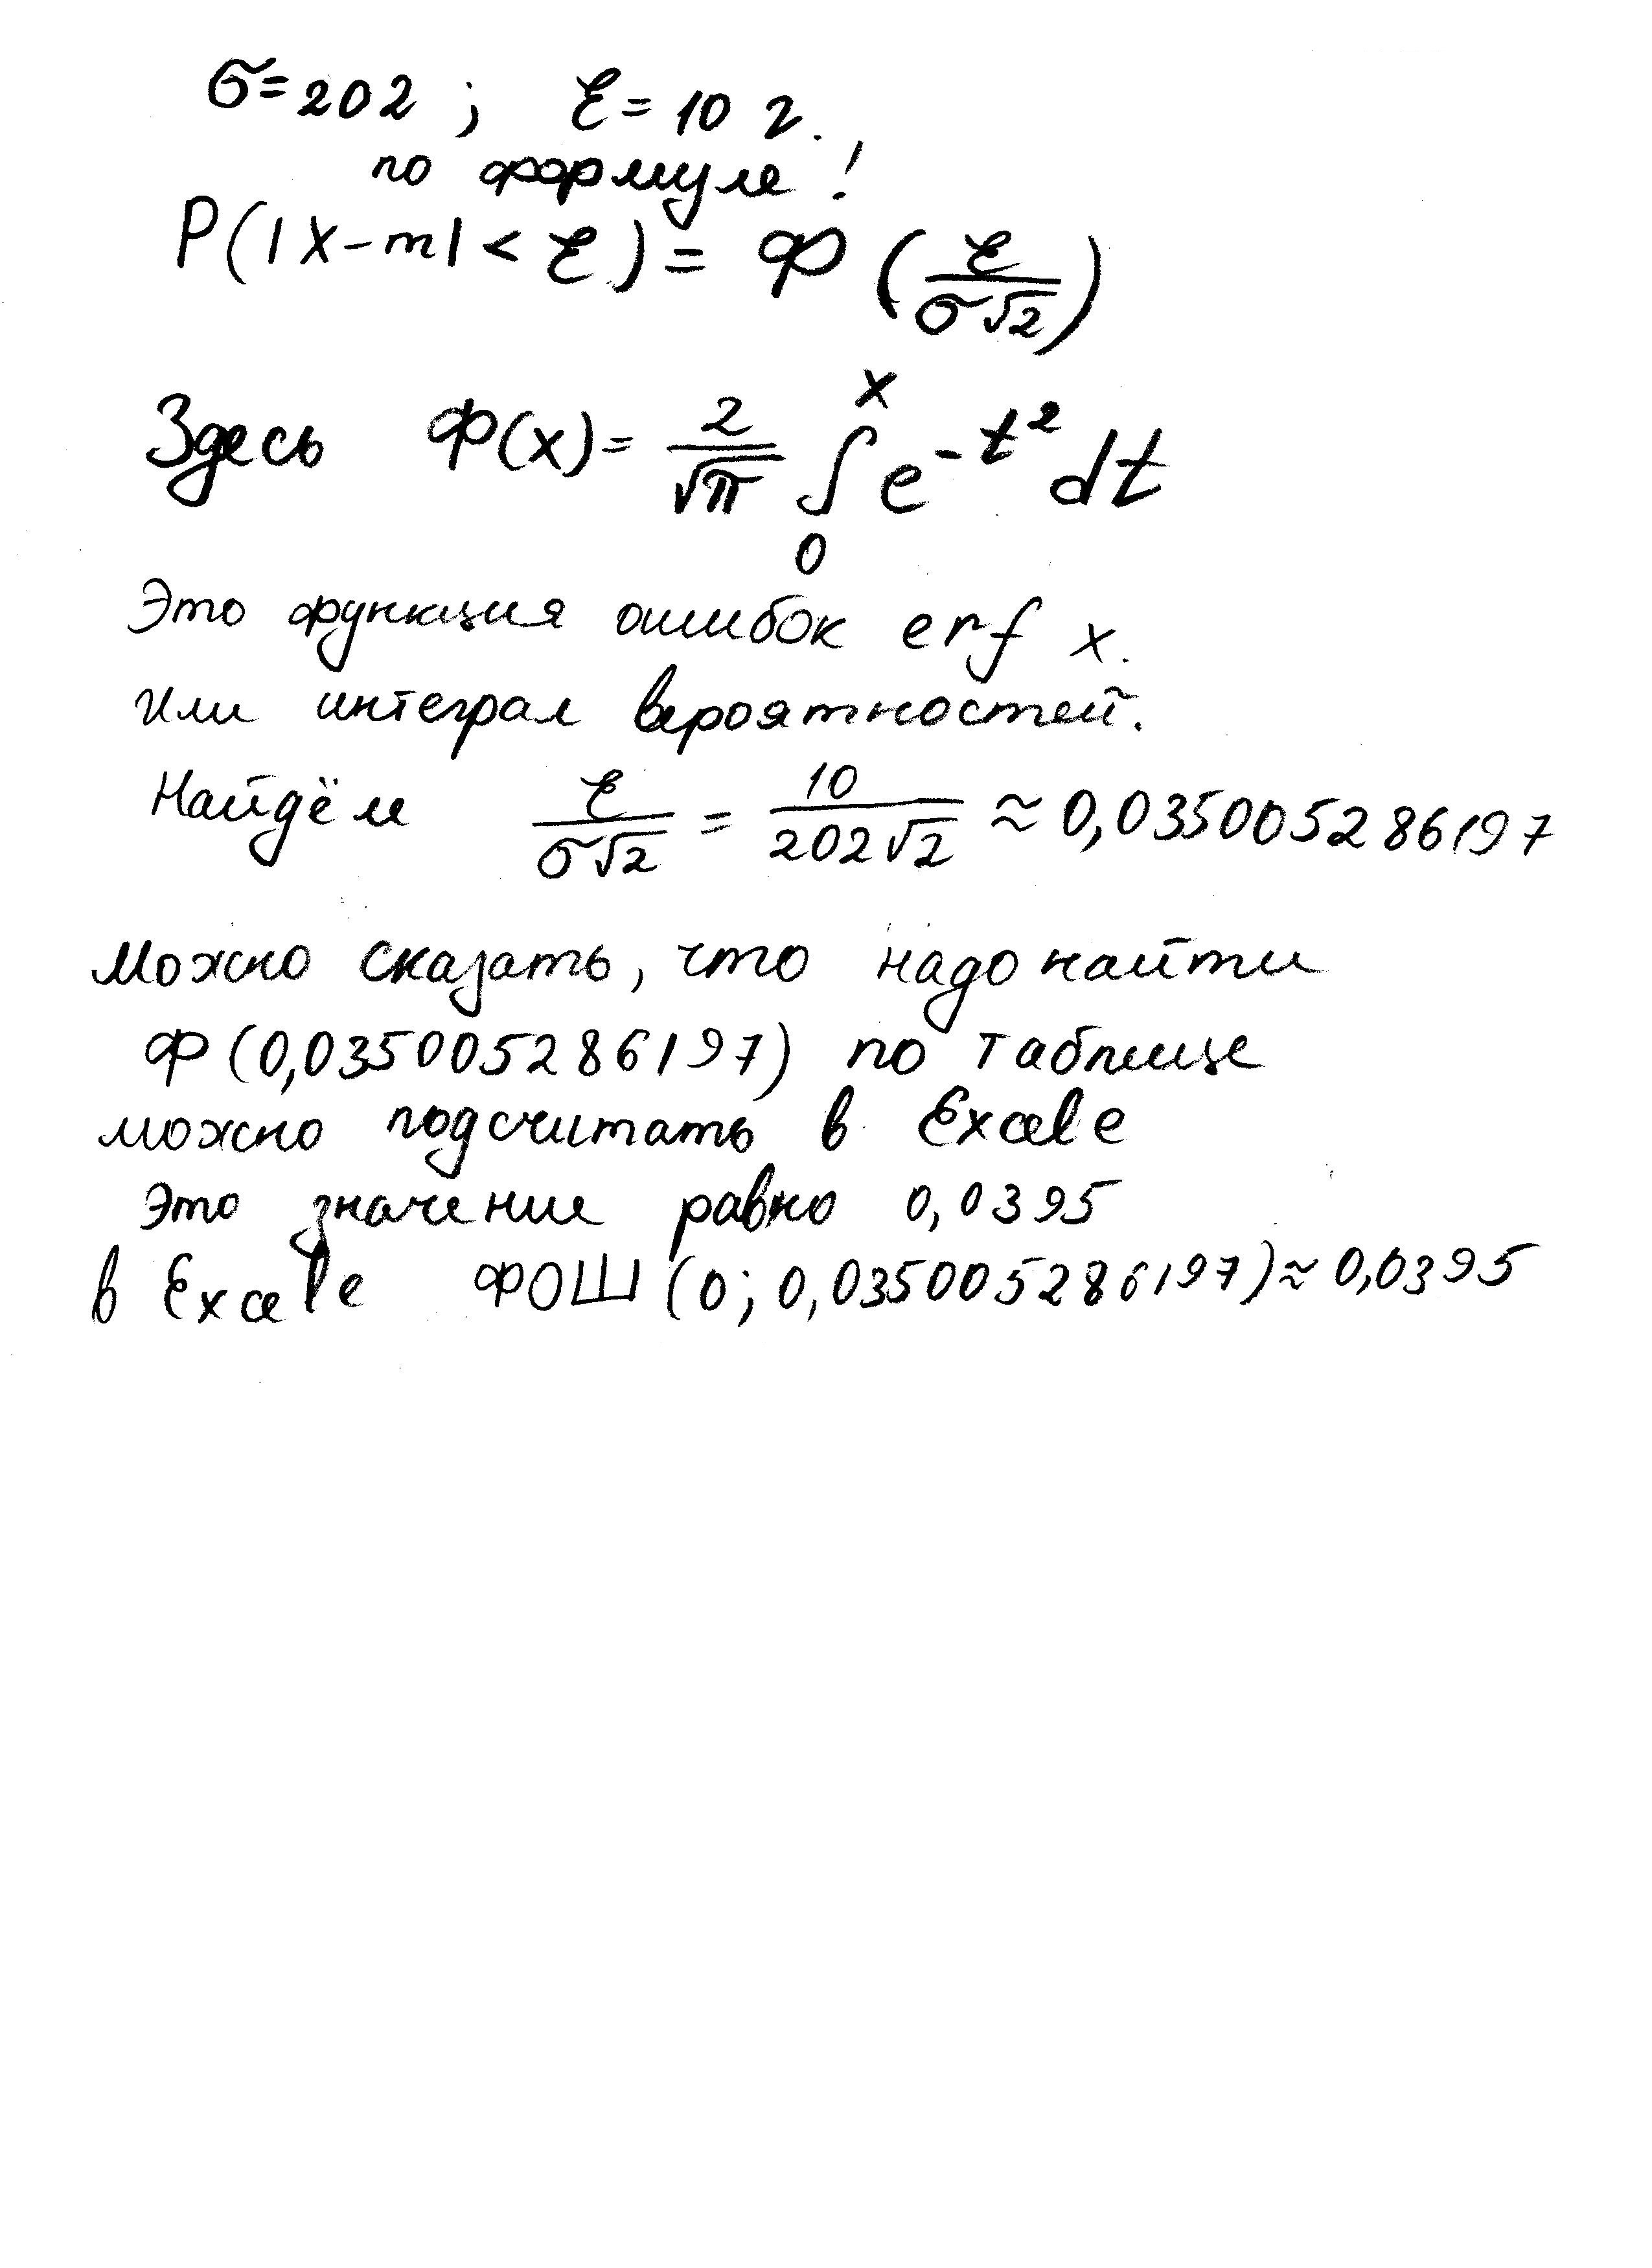 σ = 202 ; ℰ = 10 г.
по формуле!
P(|X - m| < ℰ) = Ф (ℰ/(σ√2))
Здесь Ф(x) = 2/√π ∫₀ˣ e^(-t²) dt
Это функция ошибок erf x.
Или интеграл вероятностей.
Найдём ℰ/(σ√2) = 10/(202√2) ≈ 0,035005286197
Можно сказать, что надо найти
Ф (0,035005286197) по таблице
можно подсчитать в Excele
Это значение равно 0,0395
в Excele ФОШ (0; 0,035005286197) ≈ 0,0395